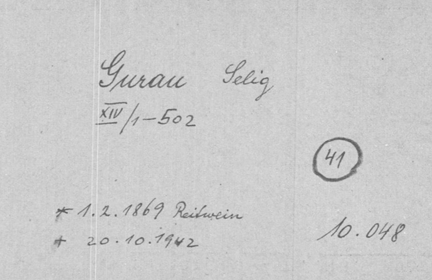 Gurau Selig
XIV/1-502
41
* 1.2.1869 Reitwein
+ 20.10.1942
10.048